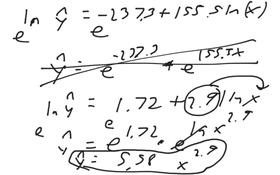 ln ŷ = -237.3 + 155.5 ln(x)
e e
ŷ = e^-237.3 + e^155.5x
ln ŷ = 1.72 + 2.9 ln x
e e e
ŷ = e^1.72 · e^ln x^2.9
ŷ = 5.58 x^2.9